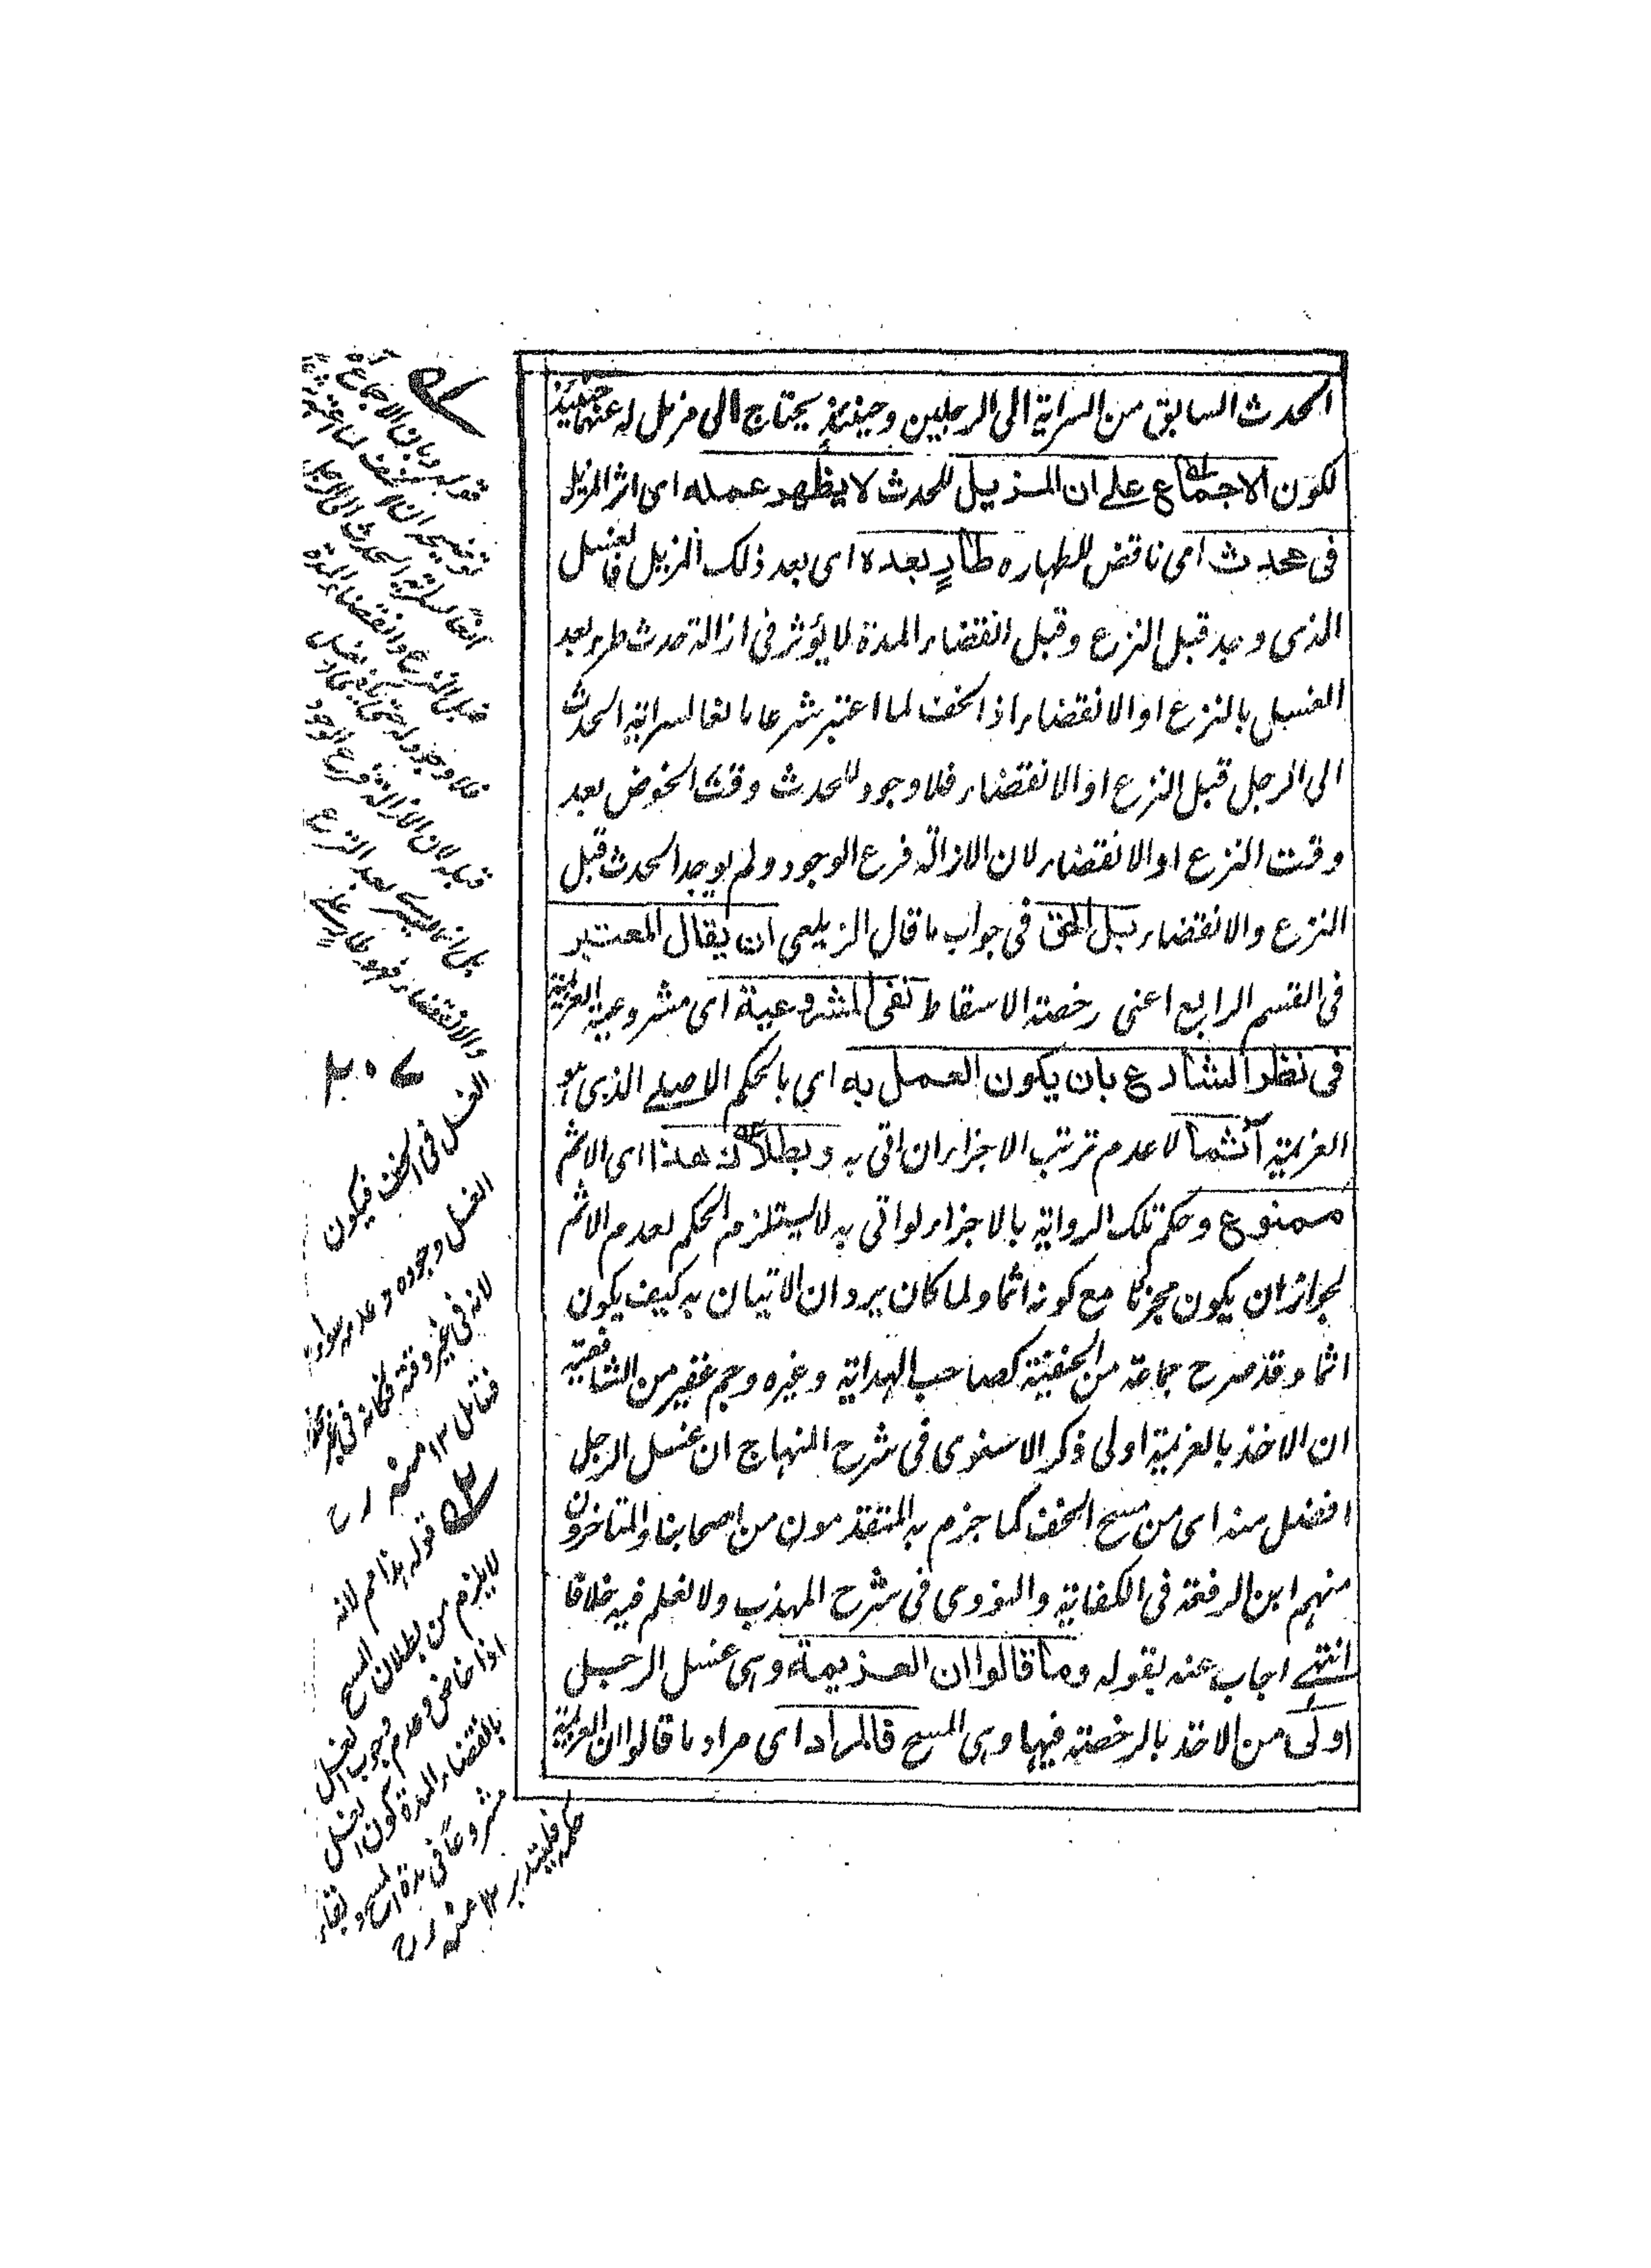 الحدث السابق من السراية الى الرجلين وحينئذ يحتاج الى مزيل له عنهما حينئذ
لكون الاجماع على ان المزيل للحدث لا يظهر عمله اى اثر المزيل
فى حدث اى ناقض للطهاره طار بعده اى بعد ذلك المزيل فالغسل
الذى وجد قبل النزع وقبل انقضاء المدة لا يؤثر فى ازالة حدث طرء بعد
الغسل بالنزع او الانقضاء اذ الخف لما اعتبر شرعا مانعا لسراية الحدث
الى الرجل قبل النزع او الانقضاء فلا وجود للحدث وقت الخوض بعد
وقت النزع او الانقضاء لان الازالة فرع الوجود ولم يوجد الحدث قبل
النزع والانقضاء بل الحق فى جواب ما قال الزيلعى ان يقال المعتبر
فى القسم الرابع اعنى رخصة الاسقاط نفى المشروعية اى مشروعية العزيمة
فى نظر الشارع بان يكون العمل به اى بالحكم الاصلى الذى هو
العزيمة آثما لا عدم ترتب الاجزاء ان اتى به وبطلان هذا اى الاثم
ممنوع وحكم تلك الرواية بالاجزاء لو اتى به لا يستلزم الحكم لعدم الاثم
لجواز ان يكون مجزئا مع كونه اثما ولما كان يرد ان الاتيان به كيف يكون
اثما وقد صرح جماعة من الحنفية كصاحب الهداية وغيره وجم غفير من الشافعية
ان الاخذ بالعزيمة اولى ذكر الاسنوى فى شرح المنهاج ان غسل الرجل
افضل منه اى من مسح الخف كما جزم به المتقدمون من اصحابنا والمتاخرون
منهم ابن الرفعة فى الكفاية والنووى فى شرح المهذب ولا نعلم فيه خلافا
انتهى اجاب عنه بقوله وما قالوا ان العزيمة وهى غسل الرجل
اولى من الاخذ بالرخصة فيها وهى المسح فالمراد اى مراد ما قالوا ان العزيمة
الغسل فى الخف فيكون
الغسل وجوده وعدمه سواء
لانه فى غير وقته فكانه فى غير
فتامل ١٢ منه رح
قوله هذا مم لانه
لا يلزم من بطلان المسح
اذا خاض وعدم وجوب الغسل
بانقضاء المدة كون الغسل
مشروعا فى مدة المسح وبقاء
حكمه فليتدبر ١٢ منه رح